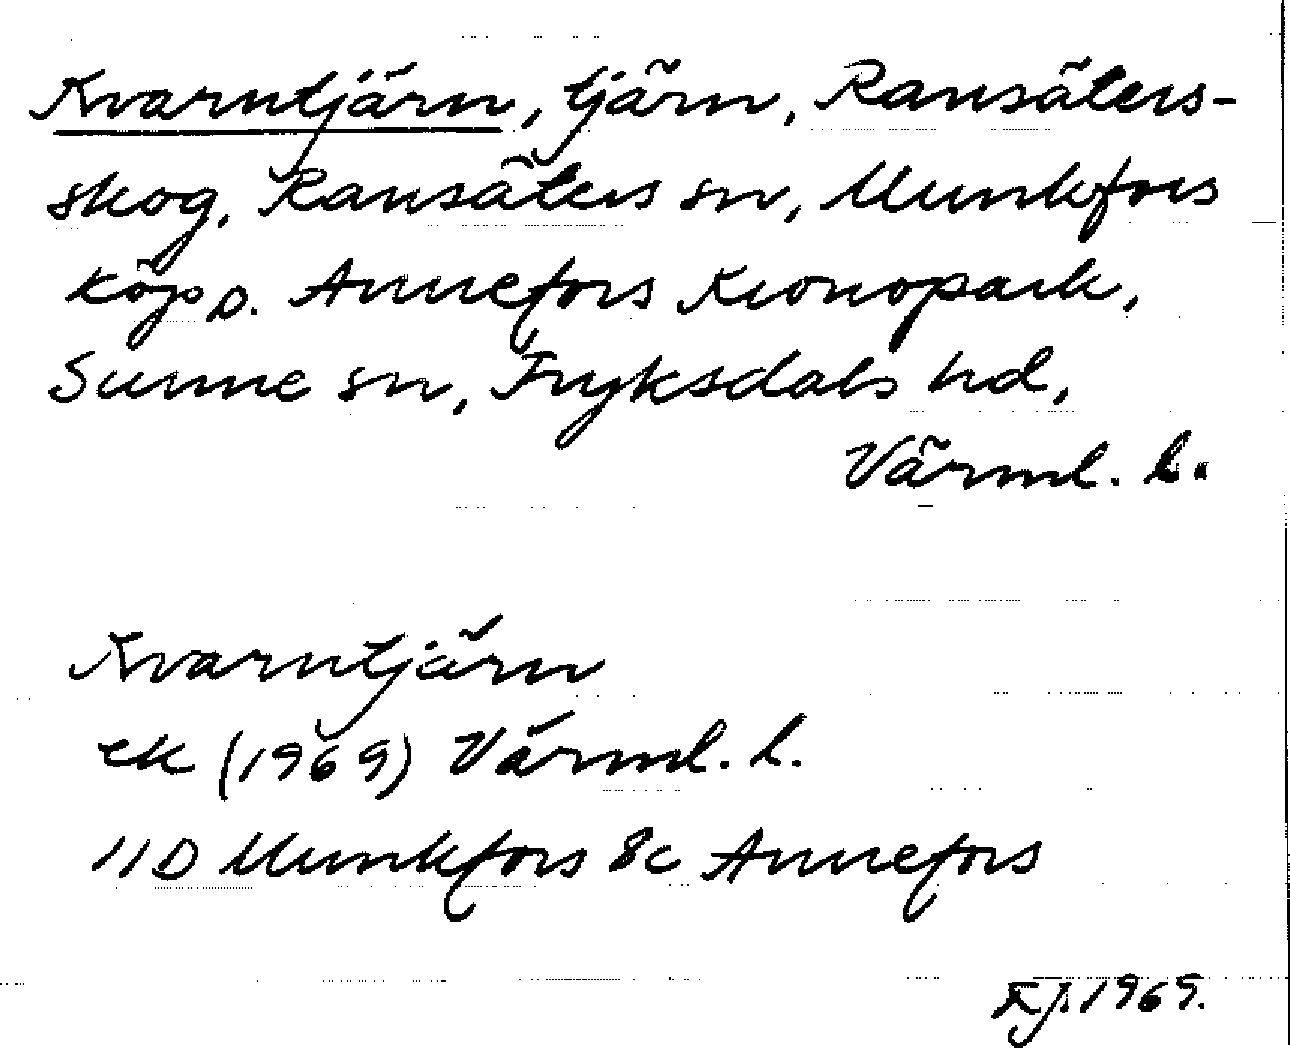 Kvarntjärn, tjärn, Ransäters-
skog, Ransäters sn, Munkfors
köp o. Annefors Kronopark,
Sunne sn, Fryksdals hd,
Värml. l.
Kvarntjärn
ek (1969) Värml. l.
11D Munkfors 8c Annefors
KJ. 1969.